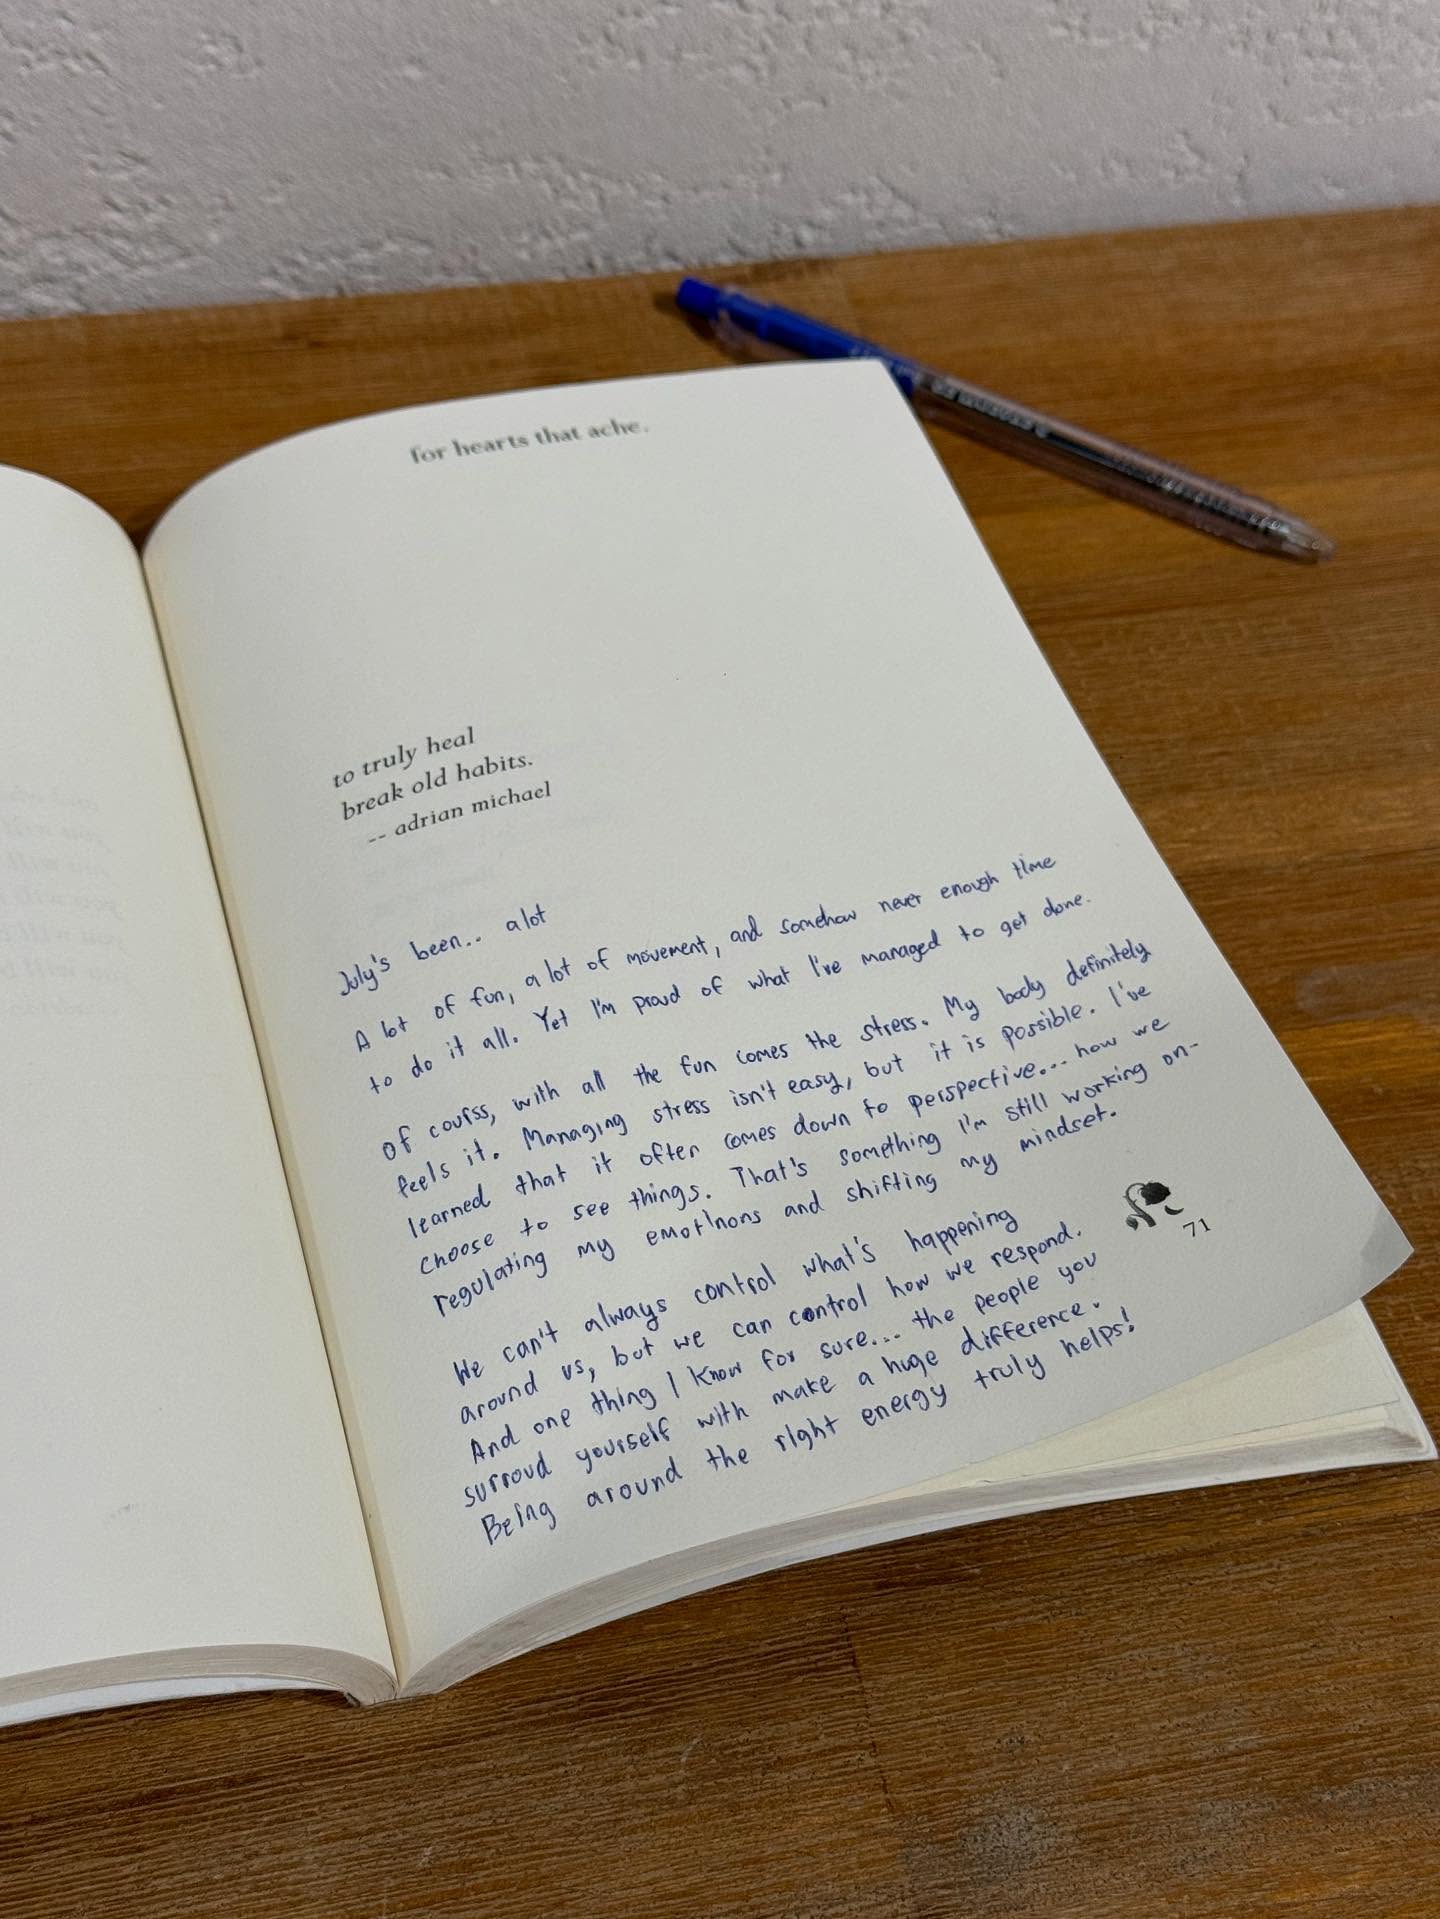 for hearts that ache.
to truly heal
break old habits.
-- adrian michael
July's been.. a lot
A lot of fun, a lot of movement, and somehow never enough time
to do it all. Yet I'm proud of what I've managed to get done.
Of courss, with all the fun comes the stress. My body definitely
feels it. Managing stress isn't easy, but it is possible. I've
learned that it often comes down to perspective... how we
choose to see things. That's something I'm still working on-
regulating my emotinons and shifting my mindset.
We can't always control what's happening
around us, but we can control how we respond.
And one thing I know for sure... the people you
surroud yourself with make a huge difference.
Being around the right energy truly helps!
71